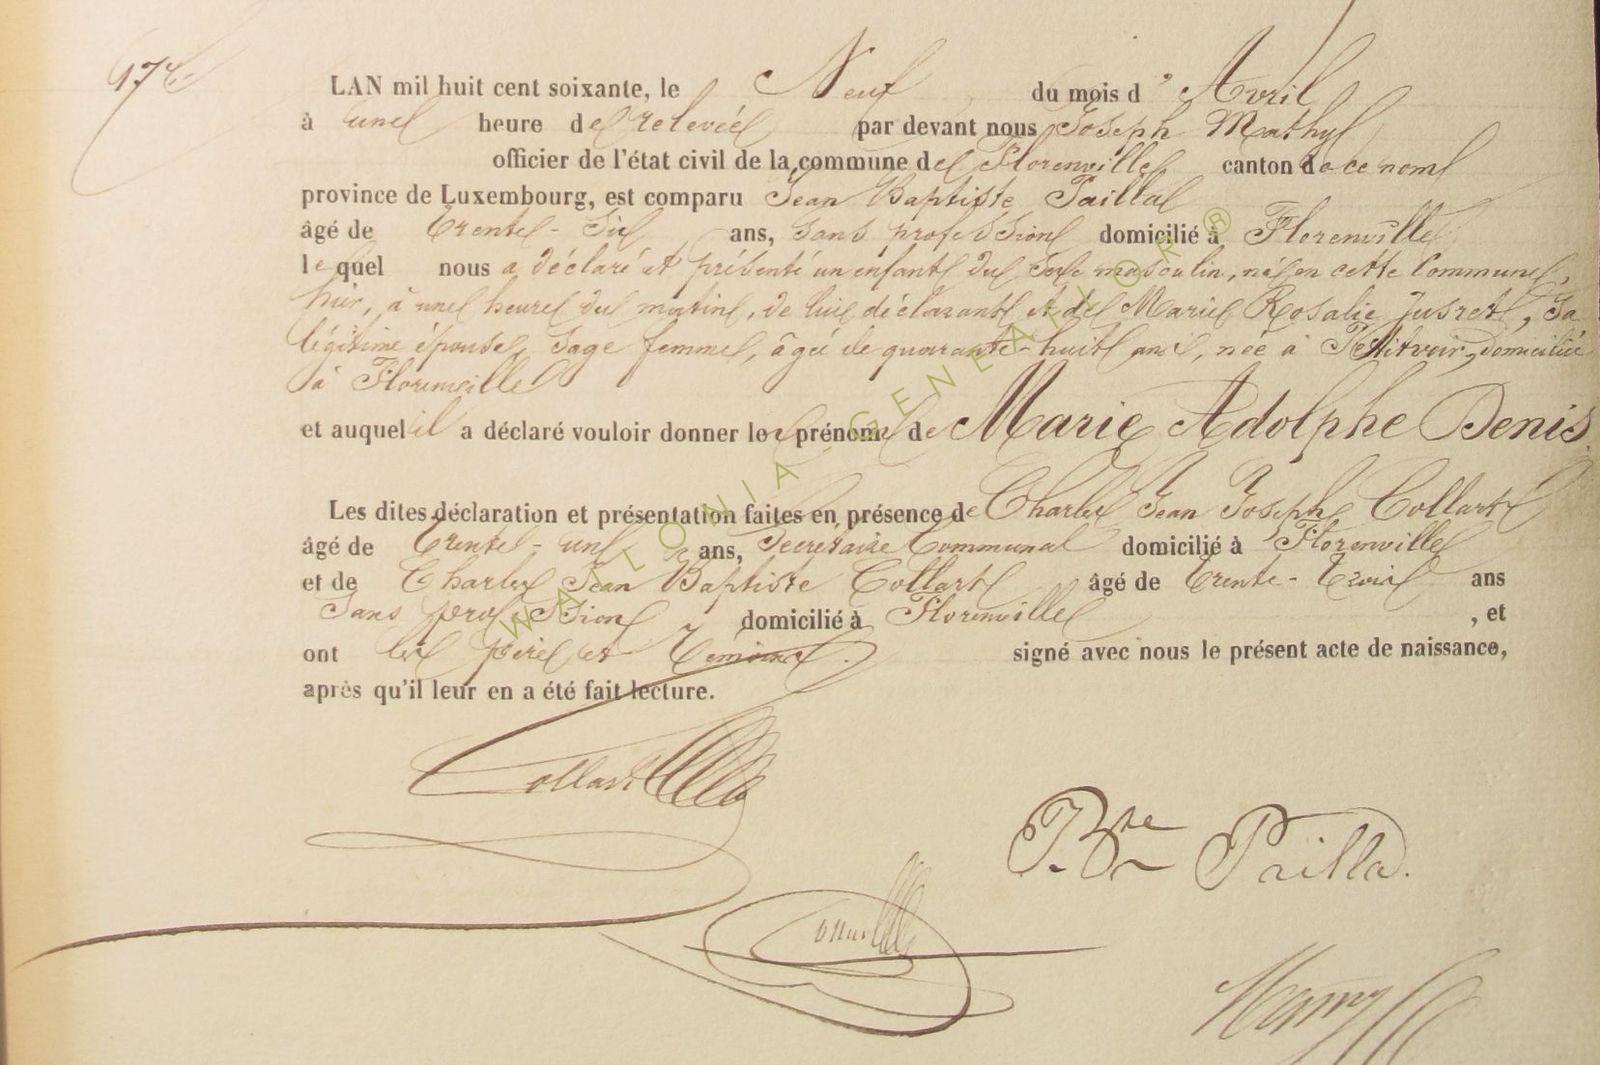 17e
LAN mil huit cent soixante, le Neuf du mois d' Avril
à une heure de relevée par devant nous Joseph Mathy
officier de l'état civil de la commune de Florenville canton de ce nom
province de Luxembourg, est comparu Jean Baptiste Pailla
âgé de trente-six ans, sans profession domicilié à Florenville
lequel nous a déclaré et présenté un enfant du sexe masculin, né en cette Commune,
hier, à une heure du matin, de lui déclarant et de Marie Rosalie Jusret, sa
légitime épouse, sage femme, âgée de quarante-huit ans, née à Petitvoir, domiciliée
à Florenville
et auquel il a déclaré vouloir donner le prénom de Marie Adolphe Denis.
Les dites déclaration et présentation faites en présence de Charles Jean Joseph Collart
âgé de trente-un ans, Secrétaire Communal domicilié à Florenville
et de Charles Jean Baptiste Collart âgé de trente-trois ans
sans profession domicilié à Florenville , et
ont les père et témoins. signé avec nous le présent acte de naissance,
après qu'il leur en a été fait lecture.
Collart
J. Bte Pailla.
WALLONIA-GENEALOR®